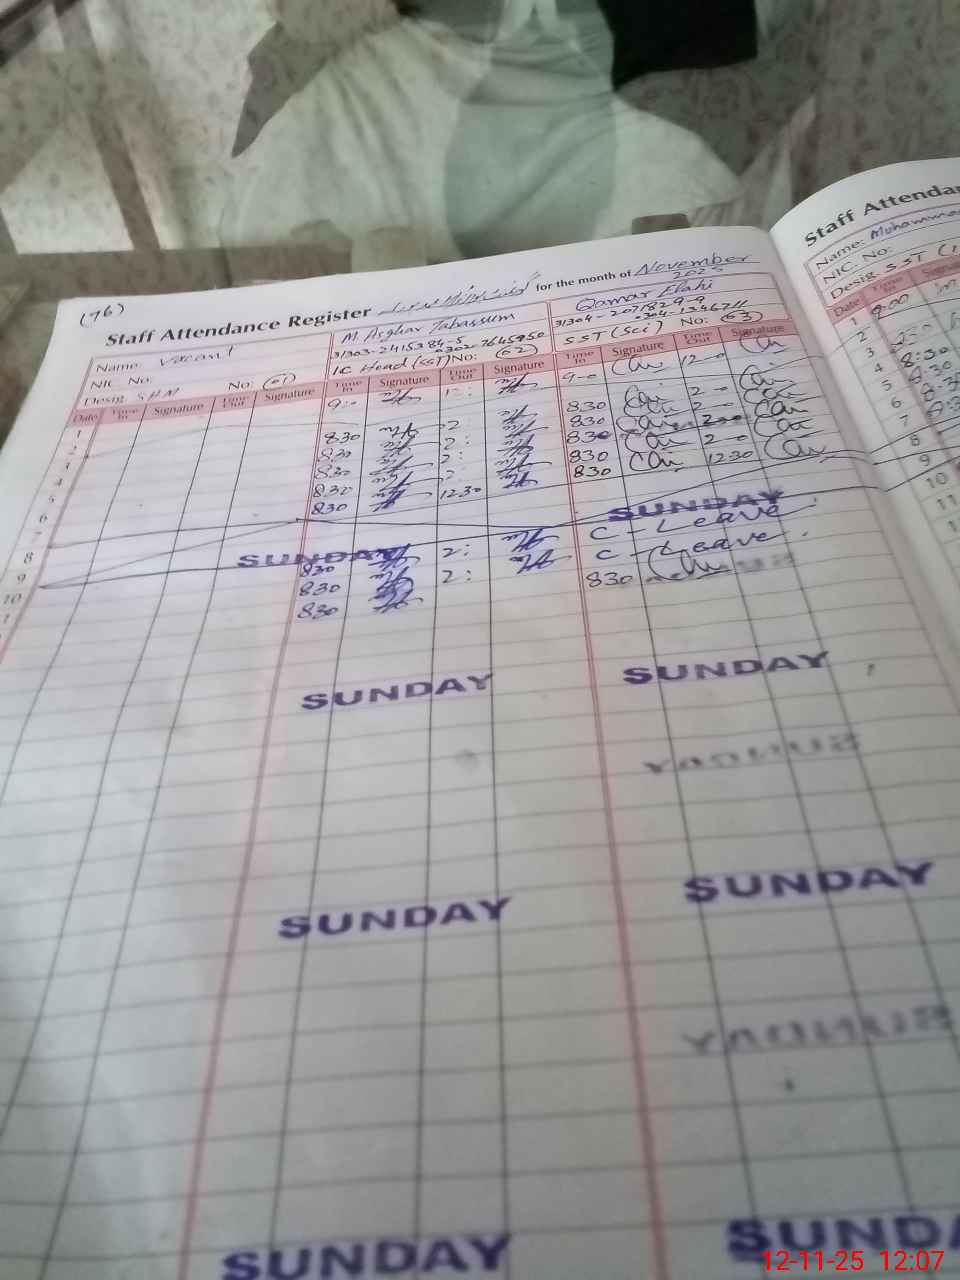 (76)
Staff Attendance Register for the month of November 2025
Name: Vacant
NIC. No:
Desig. SHM No: (61)
M. Asghar Tabassum
31303-2415384-5
IC Head (SST) No: (62)
Qamar Elahi
SST (Sci) No: (63)
Date Time In Signature Time Out Signature Time In Signature Time Out Signature Time In Signature Time Out Signature
1 9:0 12: 9-0 12-0
2
3 830 2: 830 2-0
4 830 2: 830 2-0
5 830 2: 830 2-0
6 830 2: 830 2-0
7 830 12:30 830 12-30
8
9 SUNDAY SUNDAY
10 830 2: C - Leave
830 2: C - Leave
830 830
SUNDAY SUNDAY
SUNDAY
SUNDAY SUNDAY
SUNDAY
SUNDAY SUNDA
Staff Attendan
Name: Muhamma
NIC. No:
Desig. SST (
Date Time In Signa
1 9:00
2
3
4 8:30
5 8:30
6 8:30
7 8:3
8
9
10
11
12-11-25 12:07